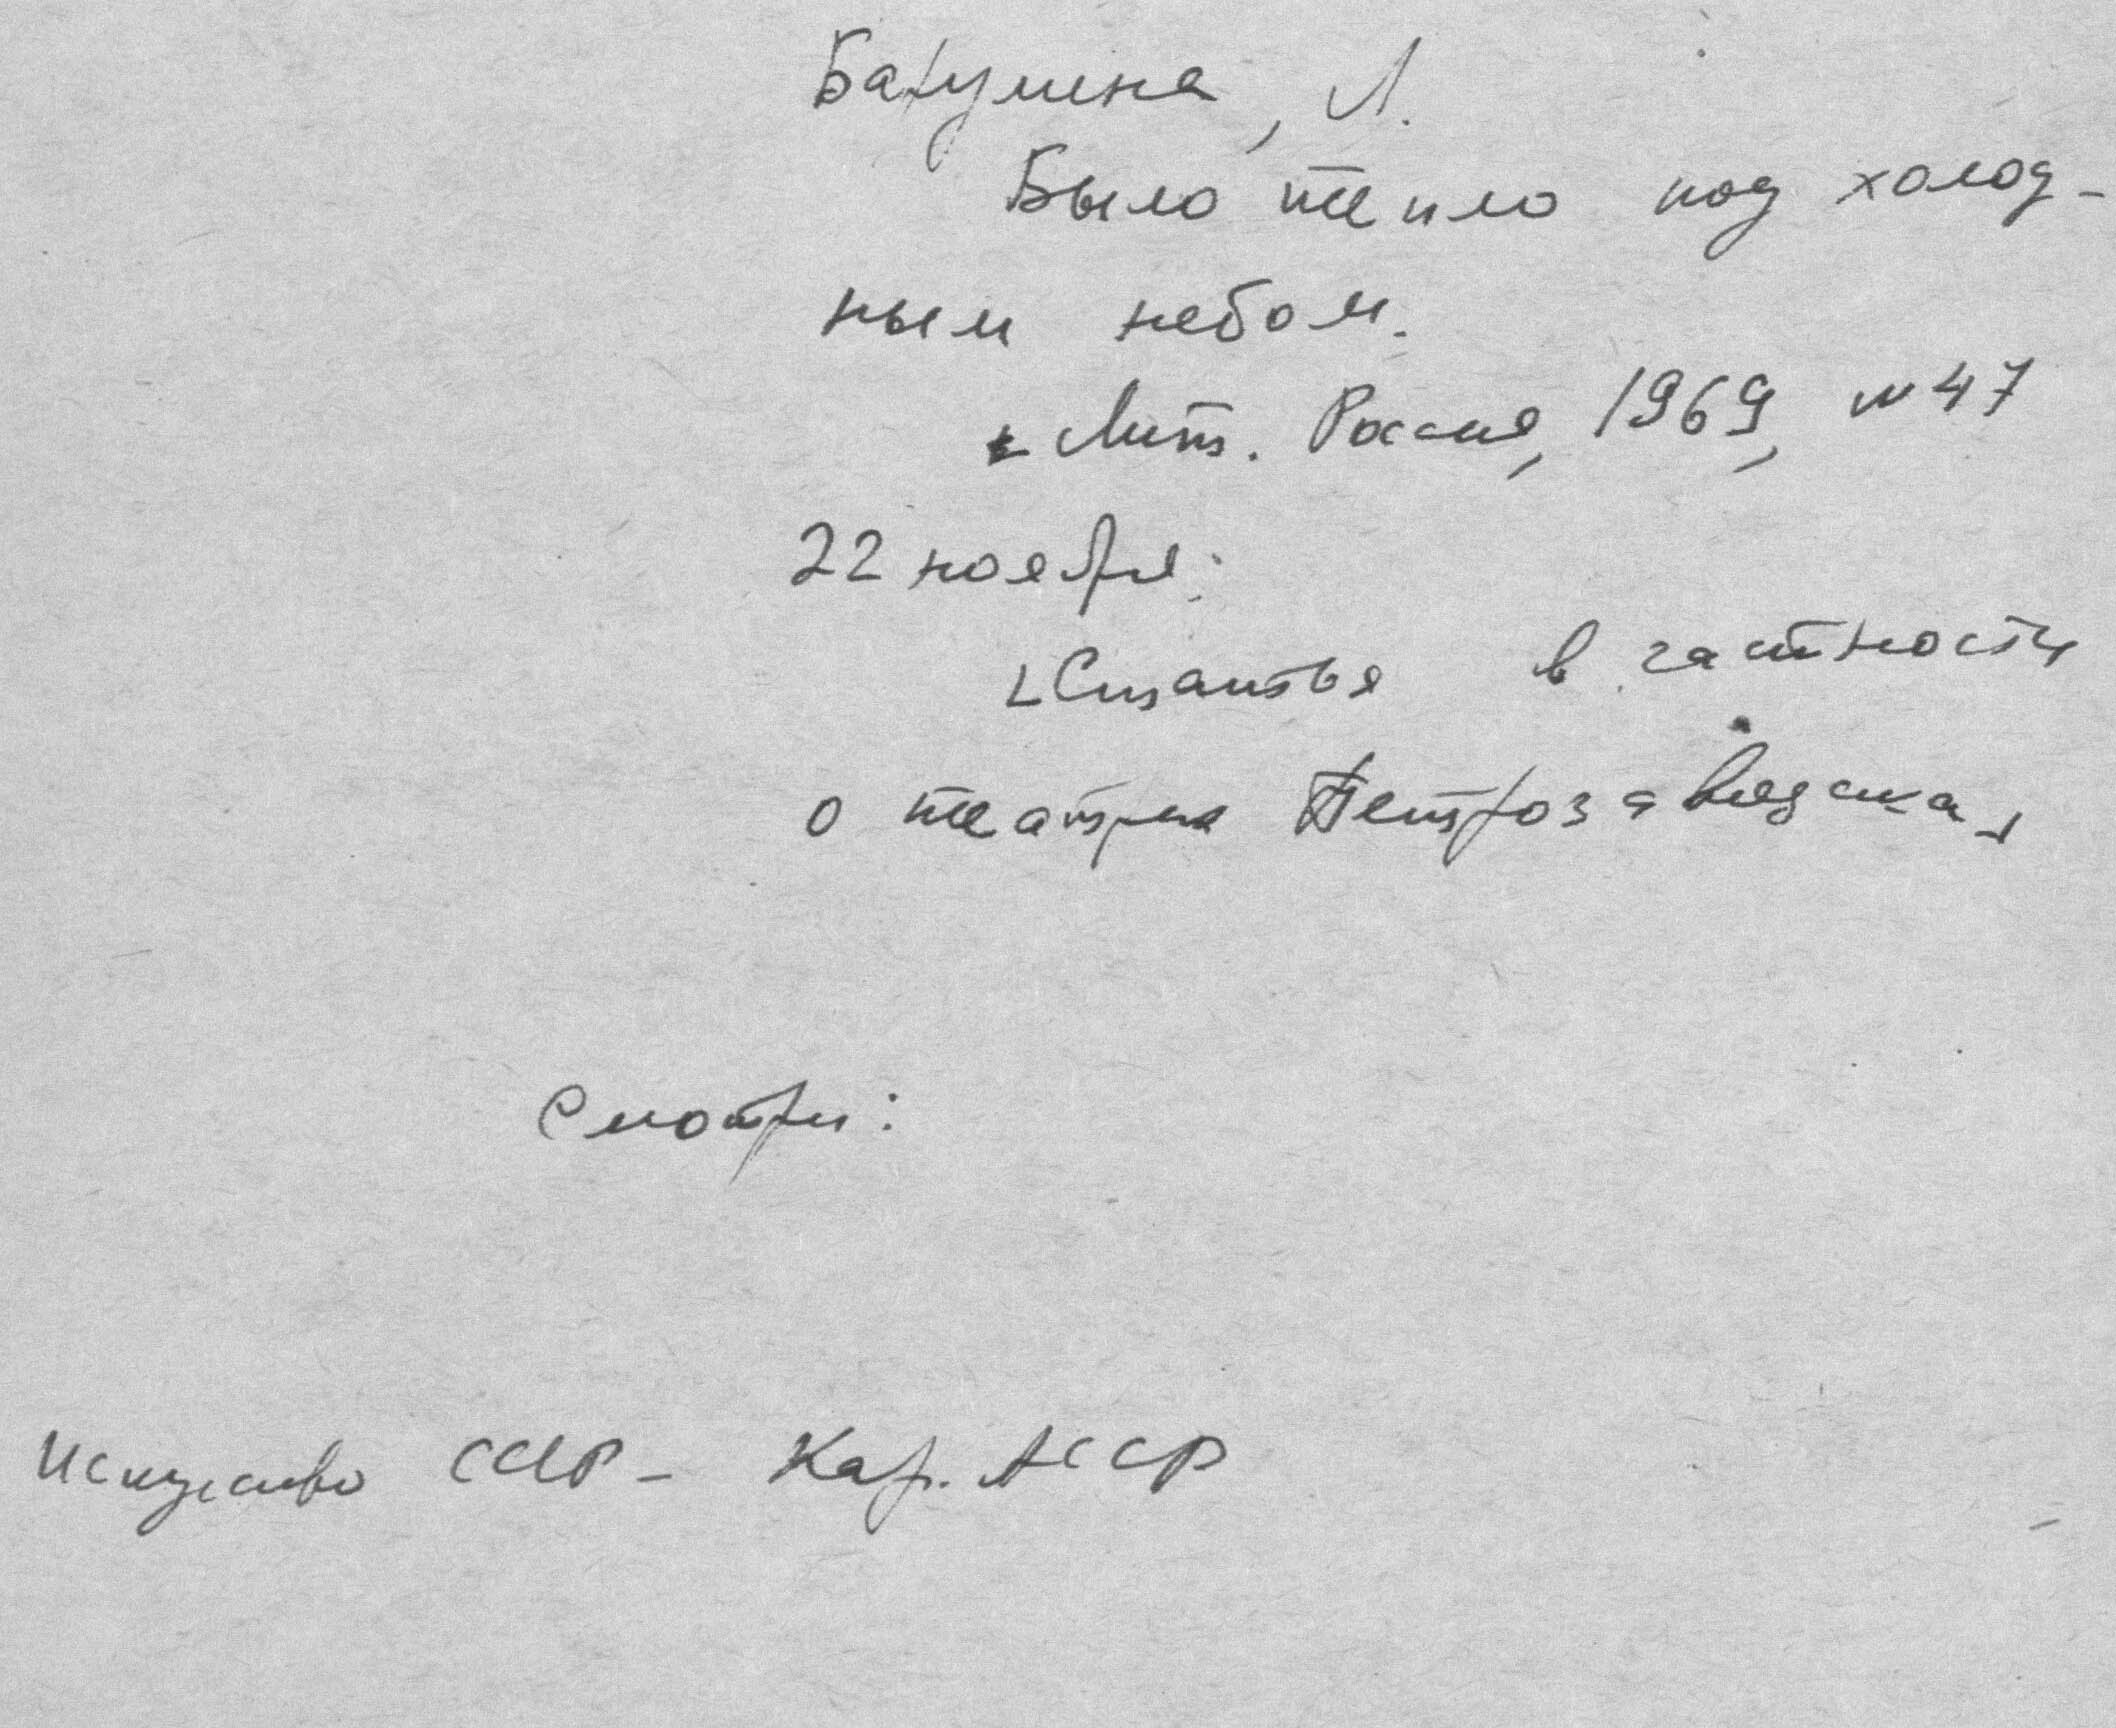 Батулина, Л.
Было тепло под холод-
ным небом.
Лит. Россия, 1969, № 47
22 ноября.
[Статья в частности
о театрах Петрозаводска]
Смотри:
Искусство СССР - Кар. АССР